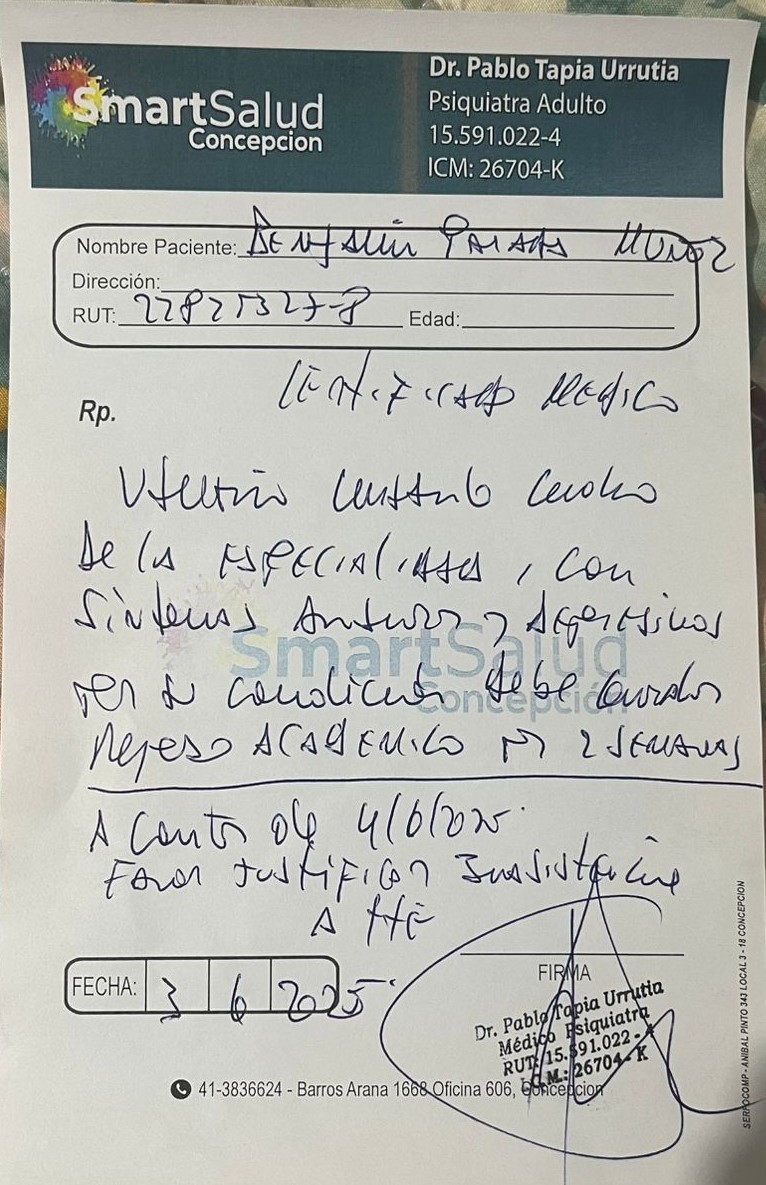 SmartSalud
Concepcion
Dr. Pablo Tapia Urrutia
Psiquiatra Adulto
15.591.022-4
ICM: 26704-K
Nombre Paciente: Benjamin Parada Muñoz
Dirección:
RUT: 22827327-8 Edad:
Certificado Medico
Rp.
cuadro
De la especialidad, con
Sintomas Ansiosos y depresivos
por su condición debe guardar
Reposo Academico por 2 semanas
A contar del 4/6/2025.
Favor Justificar Inasistencia
A
SmartSalud
Concepción
FECHA: 3 6 2025
FIRMA
Dr. Pablo Tapia Urrutia
Médico Psiquiatra
RUT: 15.591.022-4
I.C.M.: 26704-K
41-3836624 - Barros Arana 1668 Oficina 606, Concepcion
SERPOCOMP - ANIBAL PINTO 343 LOCAL 3 - 18 CONCEPCION